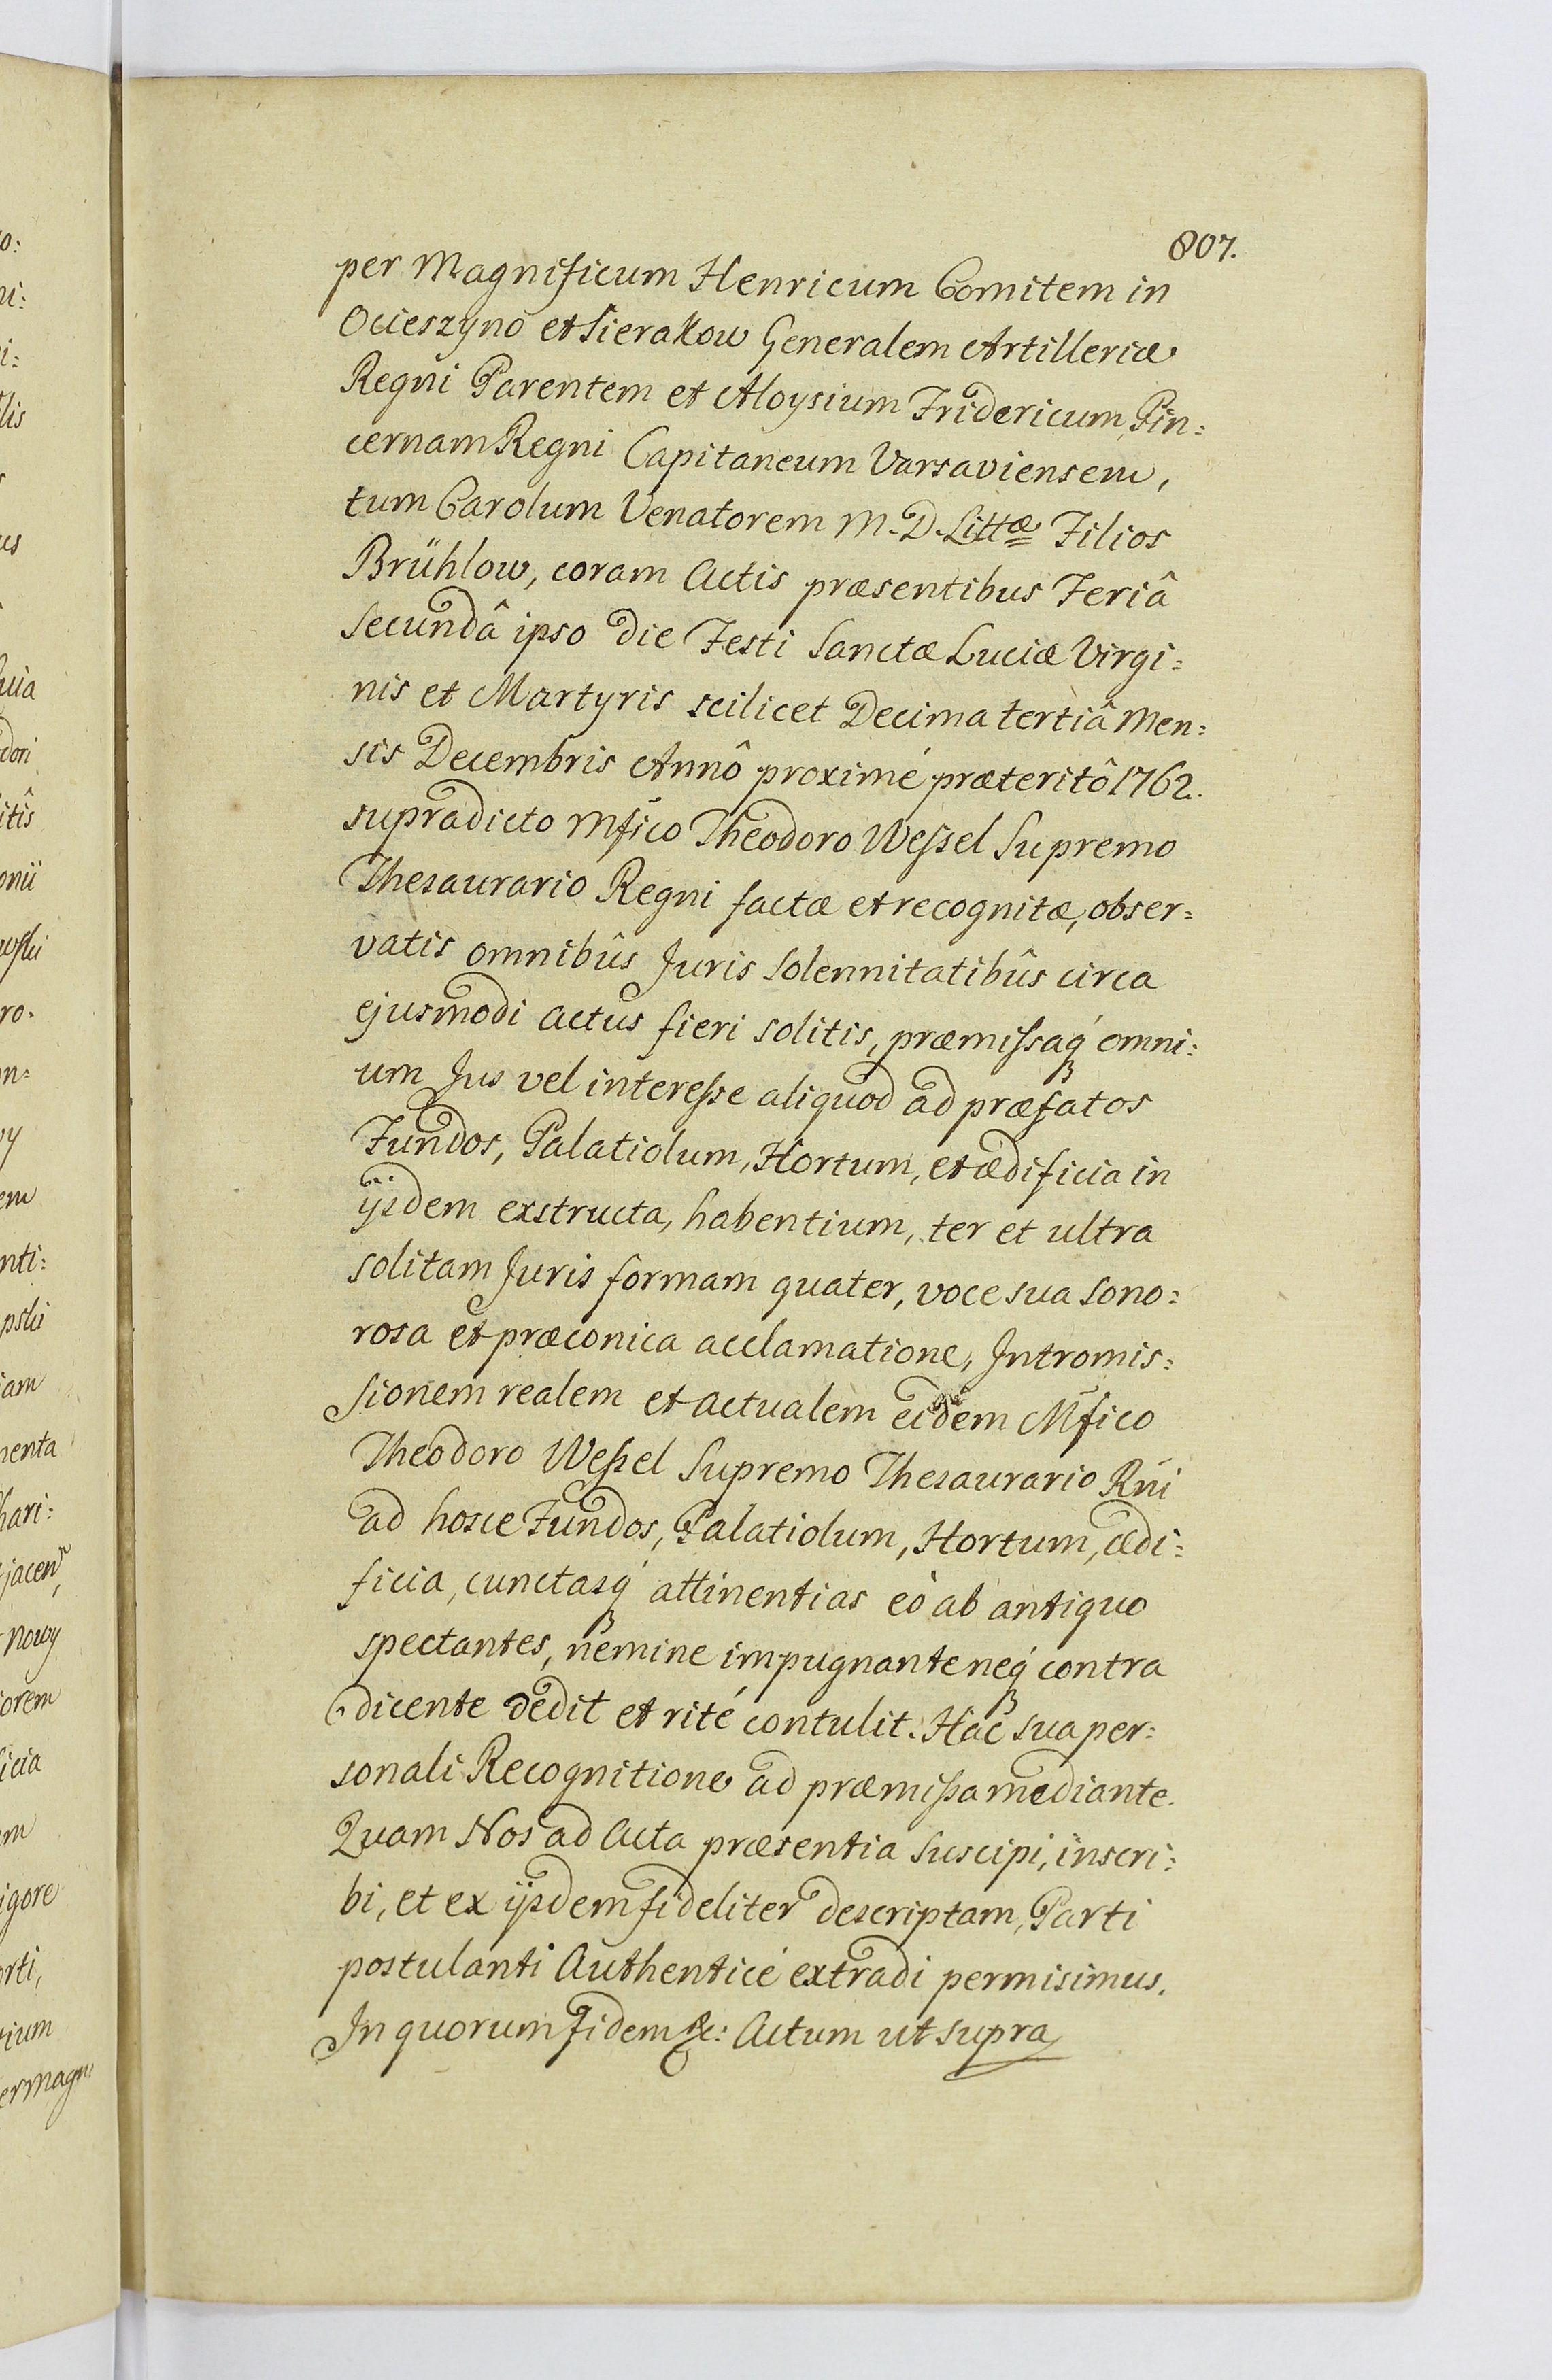 807.
per Magnificum Henricum Comitem in
Ocieszyno et Sierakow Generalem Artilleriæ
Regni Parentem et Aloysium Fridericum, Pin:
cernam Regni Capitaneum Varsaviensem,
tum Carolum Venatorem M. D. Littæ Filios
Brühlow, coram Actis præsentibus Feriâ
Secundâ ipso die Festi Sanctæ Luciæ Virgi:
nis et Martyris scilicet Decima tertiâ Men:
sis Decembris Annô proximé præteritô 1762.
supradicto Mfico Theodoro Wessel Supremo
Thesaurario Regni factæ et recognitæ, obser:
vatis omnibûs Juris Solennitatibûs circa
ejusmodi actus fieri solitis, præmissaq́ omni:
um Jus vel interesse aliquod ad præfatos
Fundos, Palatiolum, Hortum, et ædificia in
ijsdem exstructa, habentium, ter et ultra
solitam Juris formam quater, voce sua Sono:
rosa et præconica acclamatione, Intromis:
sionem realem et actualem eidem Mfico
Theodoro Wessel Supremo Thesaurario Rni
ad hosce Fundos, Palatiolum, Hortum, ædi:
ficia, cunctasq́ attinentias eò ab antiquo
spectantes, nemine impugnante neq́ contra
dicente dedit et rité contulit. Hac sua per:
sonali Recognitione ad præmissa mediante.
Quam Nos ad Acta præsentia Suscipi, inscri:
bi, et ex ijsdem fideliter descriptam, Parti
postulanti Authenticé extradi permisimus.
In quorum fidem &c: Actum ut supra